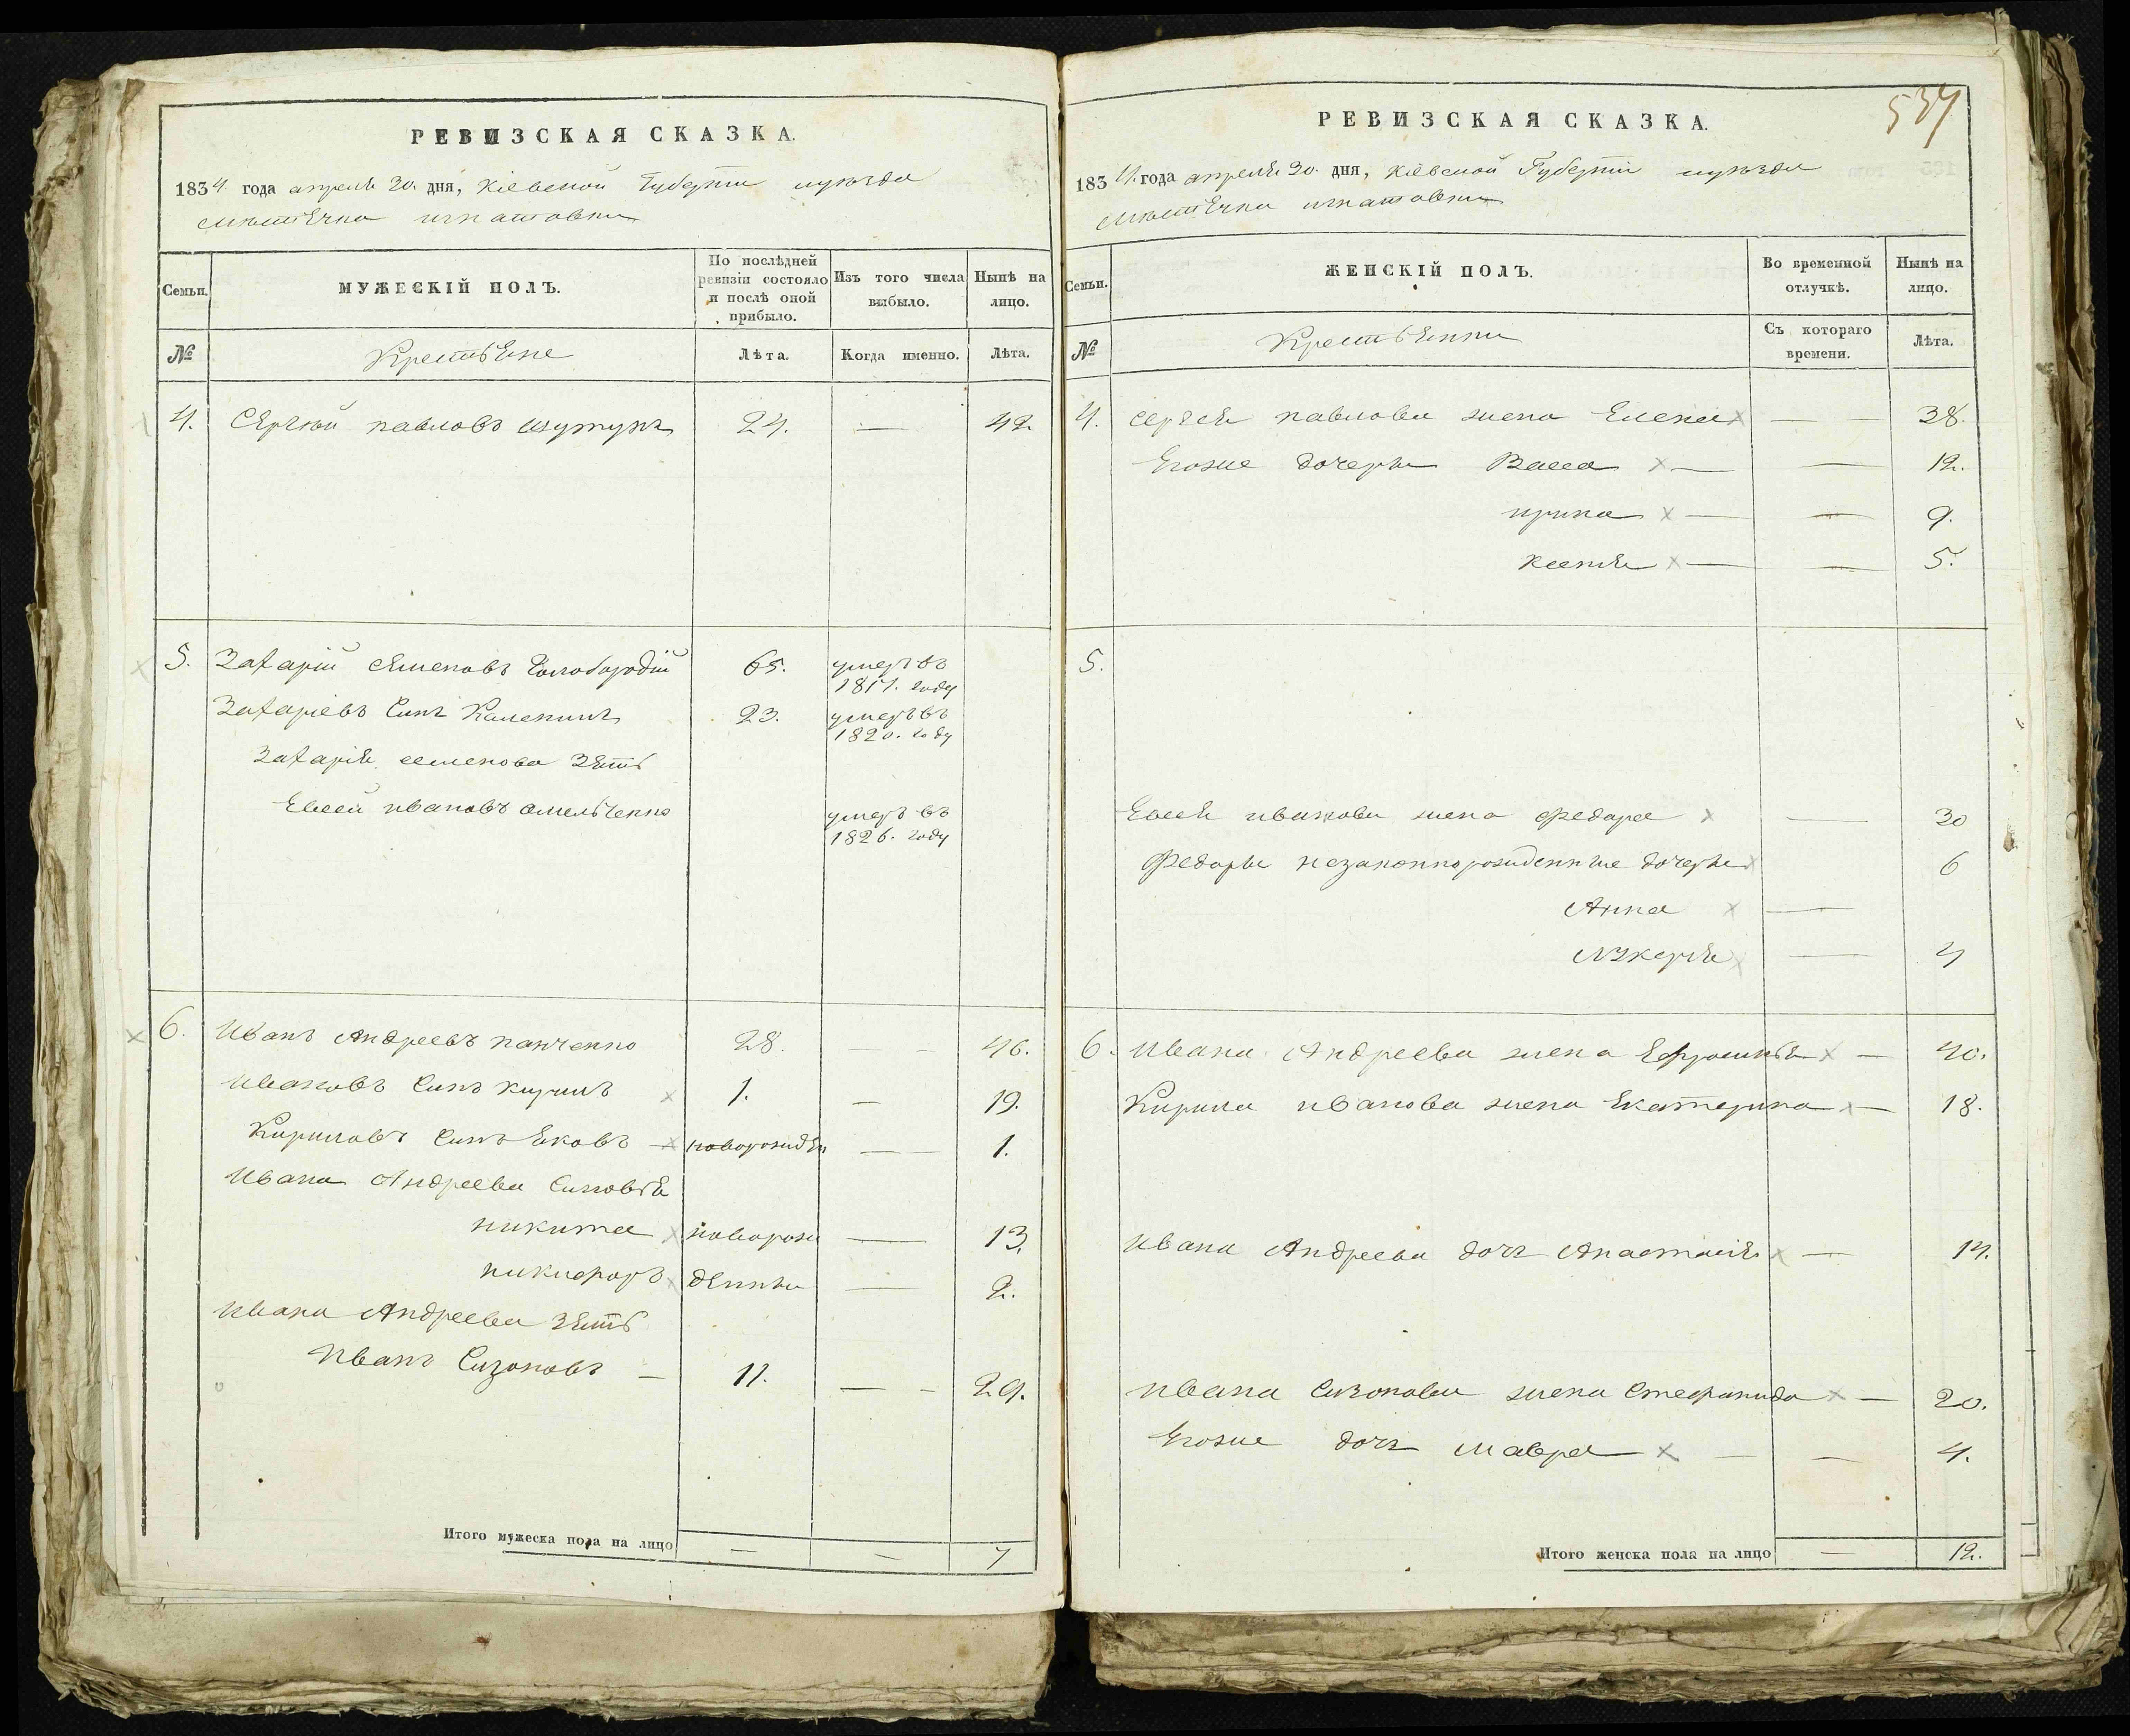 РЕВИЗСКАЯ СКАЗКА.
1834. года апреля 30. дня, Кіевской Губерніи и уезда
местечка игнатовки
Семьи. МУЖЕСКІЙ ПОЛЪ. По послѣдней ревизіи состояло и послѣ оной прибыло. Изъ того числа выбыло. Нынѣ на лицо.
№ Крестьяне Лѣта. Когда именно. Лѣта.
4. Сергѣй павловъ 24. — 42.
5. Захарій Семеновъ Голобородій 65. умеръ въ 1817. году
Захаріевъ Сынъ Каленикъ 23. умеръ въ 1820. году
Захарія семенова зять
Евсей ивановъ омельченко умеръ въ 1826. году
6. Иванъ Андреевъ панченко 28. — - 46.
Ивановъ Сынъ кирилъ 1. — 19.
Кириловъ Сынъ Яковъ — новорожден — — 1.
Ивана Андреева Сыновья
никита новорож — 13.
никифоръ денны — 2.
Ивана Андреева зять
Иванъ Сизоновъ — 11. — - 29.
Итого мужеска пола на лицо — — 7
РЕВИЗСКАЯ СКАЗКА.
537
1834. года апреля 30. дня, Кіевской Губерніи и уезда
местечка игнатовки
Семьи. ЖЕНСКІЙ ПОЛЪ. Во временной отлучкѣ. Нынѣ на лицо.
№ Крестьянки Съ котораго времени. Лѣта.
4. сергея павлова жена Елена — — 38.
Егоже дочеры Васса — — 12.
ирина — — 9.
ксенія — — 5.
5.
Евсея иванова жена федора — 30
Федоры незаконнорожденные дочеры 6
Анна —
Лукерія — 4
6. Ивана Андреева жена Ефросинья — 40.
Кирила иванова жена Екатерина — 18.
Ивана Андреева дочъ Анастасія — 14.
Ивана Сизонова жена Стефанида — 20.
Егоже дочъ Мавра — — 4.
Итого женска пола на лицо — 12.